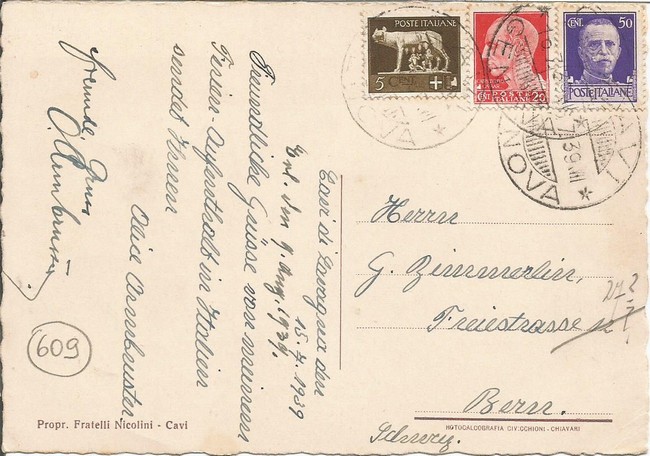 Cavi di Lavagna den
15.7.1939
Erl. den 9. Aug. 1939.
Freundliche Grüsse von meinem
Ferien-Aufenthalt in Italien
sendet Ihnen
Armbruster
Freundl. Gruss
O. Armbruster
609
Propr. Fratelli Nicolini - Cavi
POSTE ITALIANE
5 CENT.
POSTE
ITALIANE
CENT. 20
CENT. 50
POSTE ITALIANE
GENOVA
39.XVII
Herrn
G. Zimmerlin,
Freiestrasse
Bern.
Schweiz.
ROTOCALCOGRAFIA CIVICCHIONI - CHIAVARI